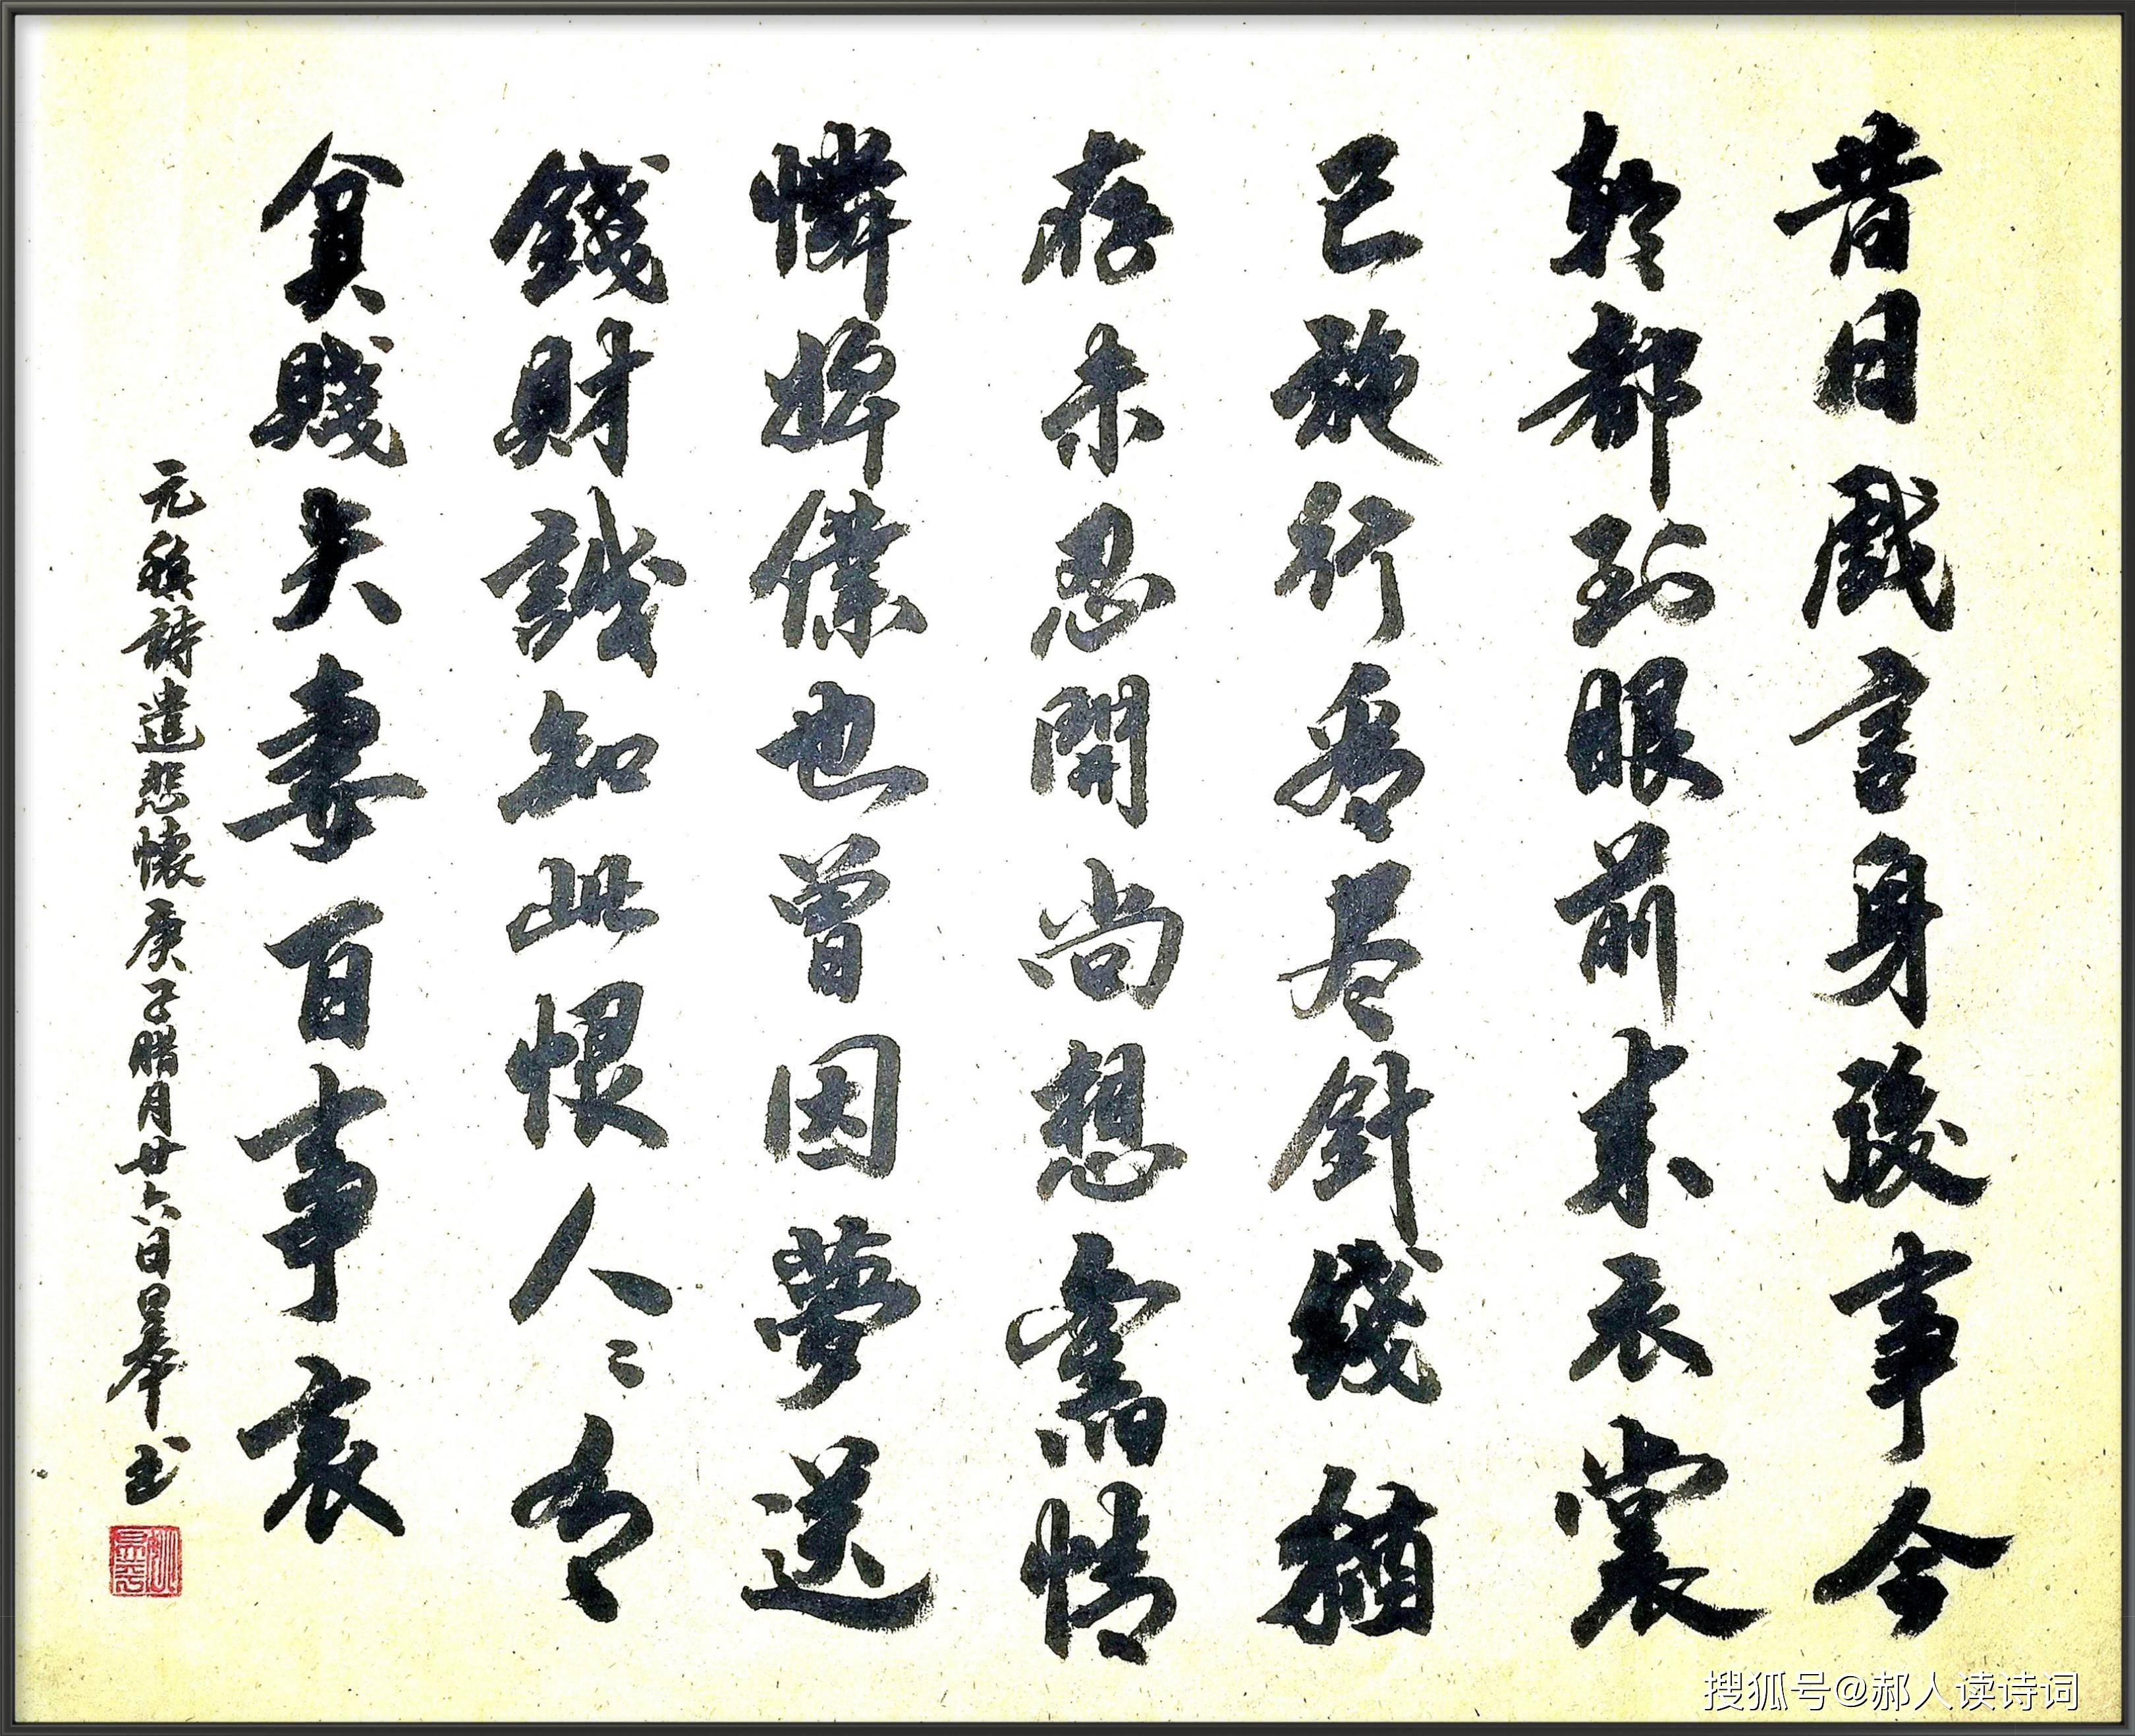 昔日戲言身後事今
朝都到眼前来衣裳
已施行看尽針綫猶
存未忍開尚想舊情
憐婢僕也曾因夢送
錢財誠知此恨人々有
貧賤夫妻百事哀
元稹詩遣悲懷庚子腊月廿六日书
搜狐号@郝人读诗词